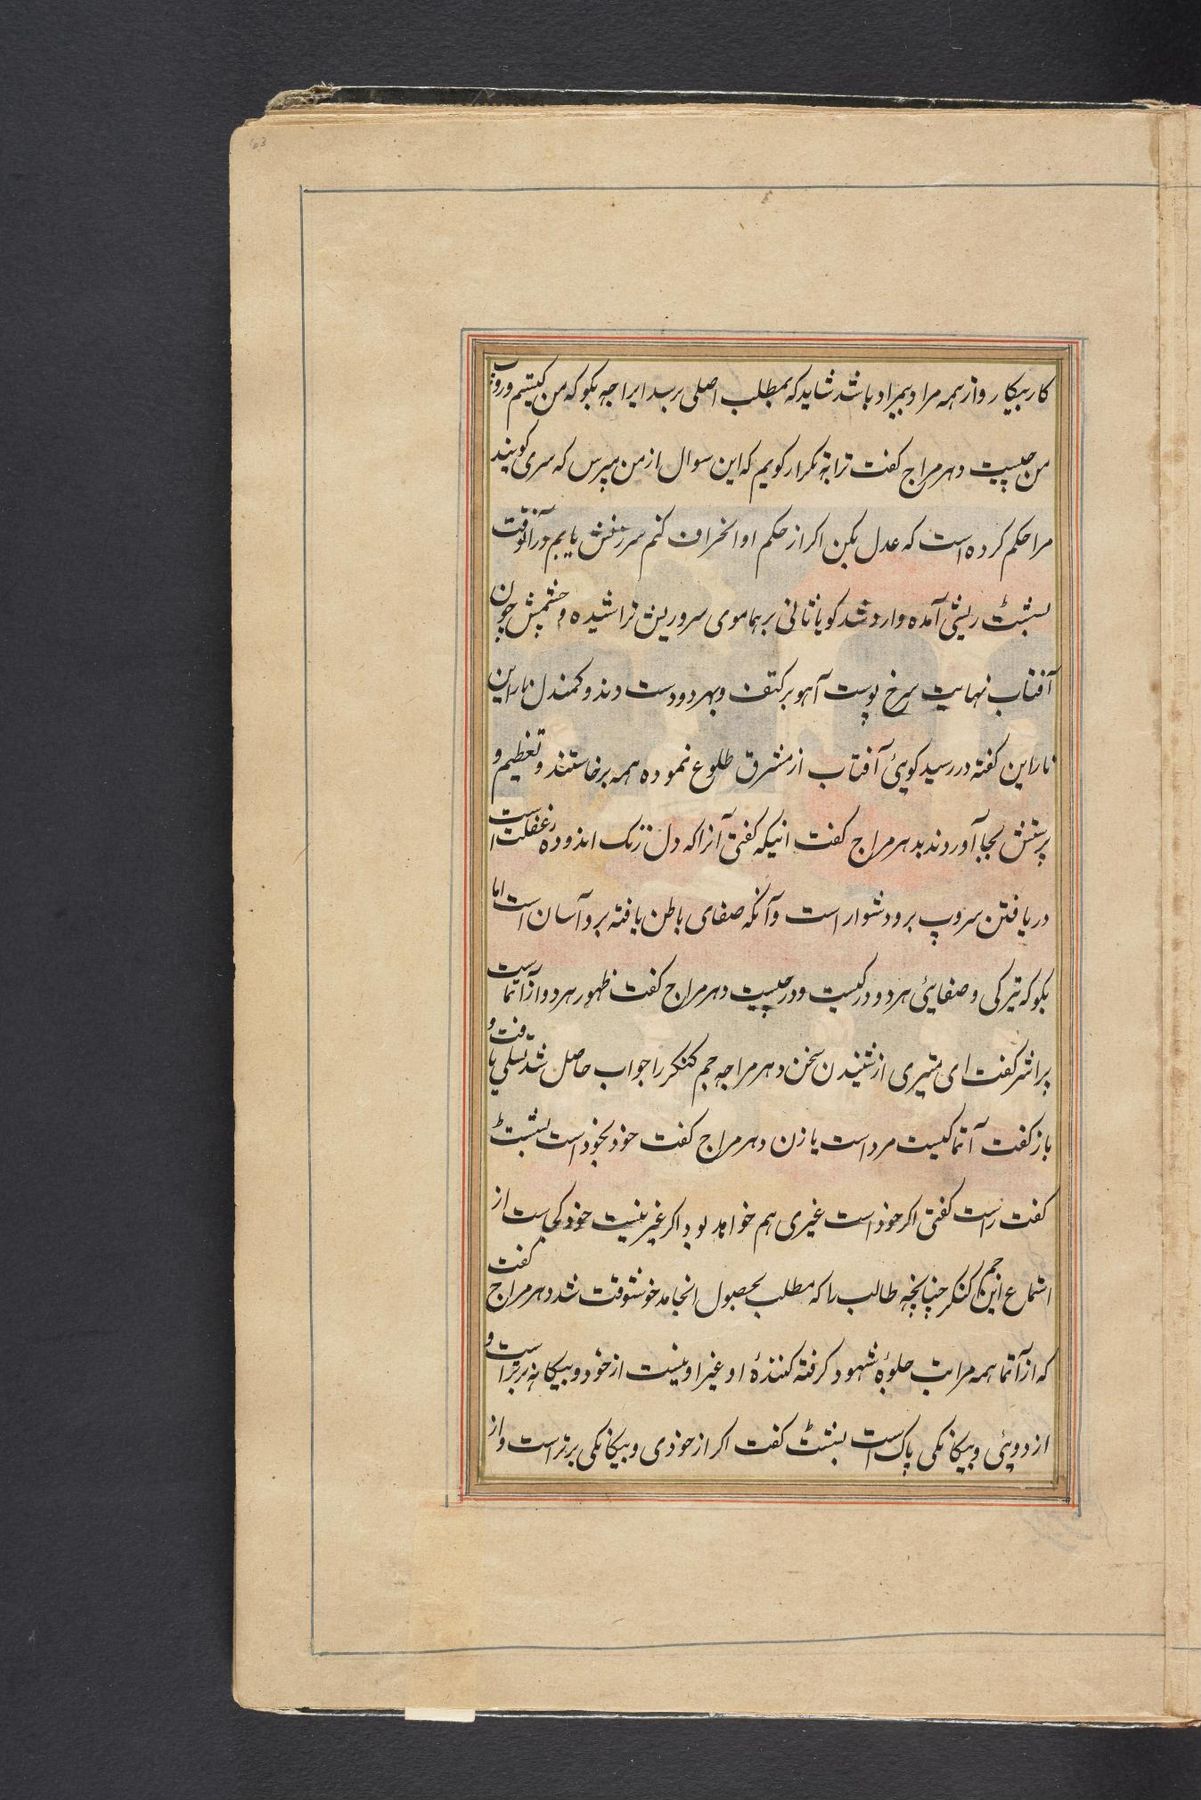 کار بیکار و از همه مراد بیمراد باشد شاید که بمطلب اصلی برسد ایراجه بکو که من کیستم و روپ
من چیست دهرمراج کفت ترا بتکرار کویم که این سوال از من مپرس که سری کویند
مرا حکم کرده است که عدل بکن اکر از حکم او انحراف کنم سرزنش یابم در آنوقت
بسشت ریشی آمده وارد شد کویا ثانی برهما موی سر و ریش تراشیده و چشمش چون
آفتاب نهایت سرخ پوست آهو بر کتف و بهر دو دست دند و کمندل ناراین
ناراین کفته در رسید کویی آفتاب از مشرق طلوع نموده همه برخاستند و تعظیم و
پرستش بجا آوردند بدهرمراج کفت انیکه کفتی آنرا که دل زنک اندوده غفلت است
دریافتن سروپ برو دشوار است و آنکه صفای باطن یافته برو آسان است اما
بکو که تیرکی و صفایی هر دو در کیست و در چیست دهرمراج کفت ظهور هر دو از آتما ست
پراشر کفت ای میتری از شنیدن سخن دهرمراجه جم کنکر را جواب حاصل شد تسلی یافت و
باز کفت آتما کیست مرد است یا زن دهرمراج کفت خود بخود است بسشت
کفت راست کفتی اکر خود است غیری هم خواهد بود اکر غیر نیست خود کجاست از
استماع این جم کنکر چنانچه طالب را که مطلب بحصول انجامد خوشوقت شد دهرمراج کفت
که از آتما همه مراتب جلوهٔ شهود کرفته کنندهٔ او غیر او نیست از خود و بیکانه برتر است و
از دویی و بیکانکی پاک است بسشت کفت اکر از خودی و بیکانکی برتر است و از
63